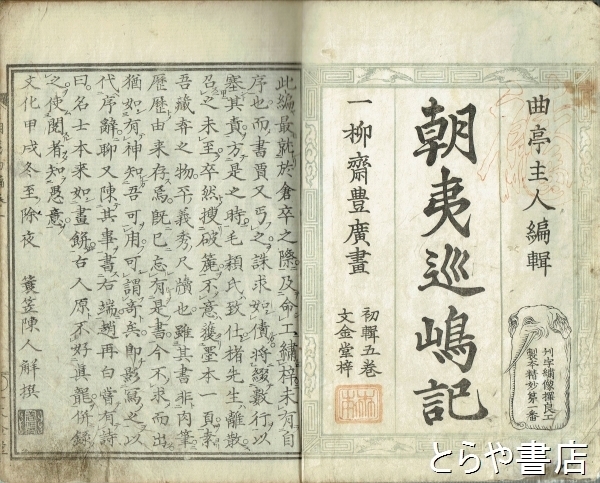 曲亭主人編輯
朝夷巡嶋記
一柳齋豊廣畫
初輯五卷
文金堂梓
列字繡像撰良工
製本精妙第一番
此編最就於倉卒之際及命工繡梓未有自
序也而書賈又丐之誅求如債將綴數行以
塞其責方是之時毛頴氏致仕楮先生離散
召之未至卒然搜破簏不意獲墨本一頁素
吾藏弆之物平義秀尺牘也雖其書非肉筆
歴歴由來存焉既已忘有是書今不求而出
猶如有神知吾可用可謂奇矣即影寫之以
代序辭聊又陳其事書右端㢤再白甞有詩
曰名士本來如畫餅古人原不好真龍併録
之使閲者知愚意
文化甲戌冬至除夜
簑笠陳人解撰
とらや書店